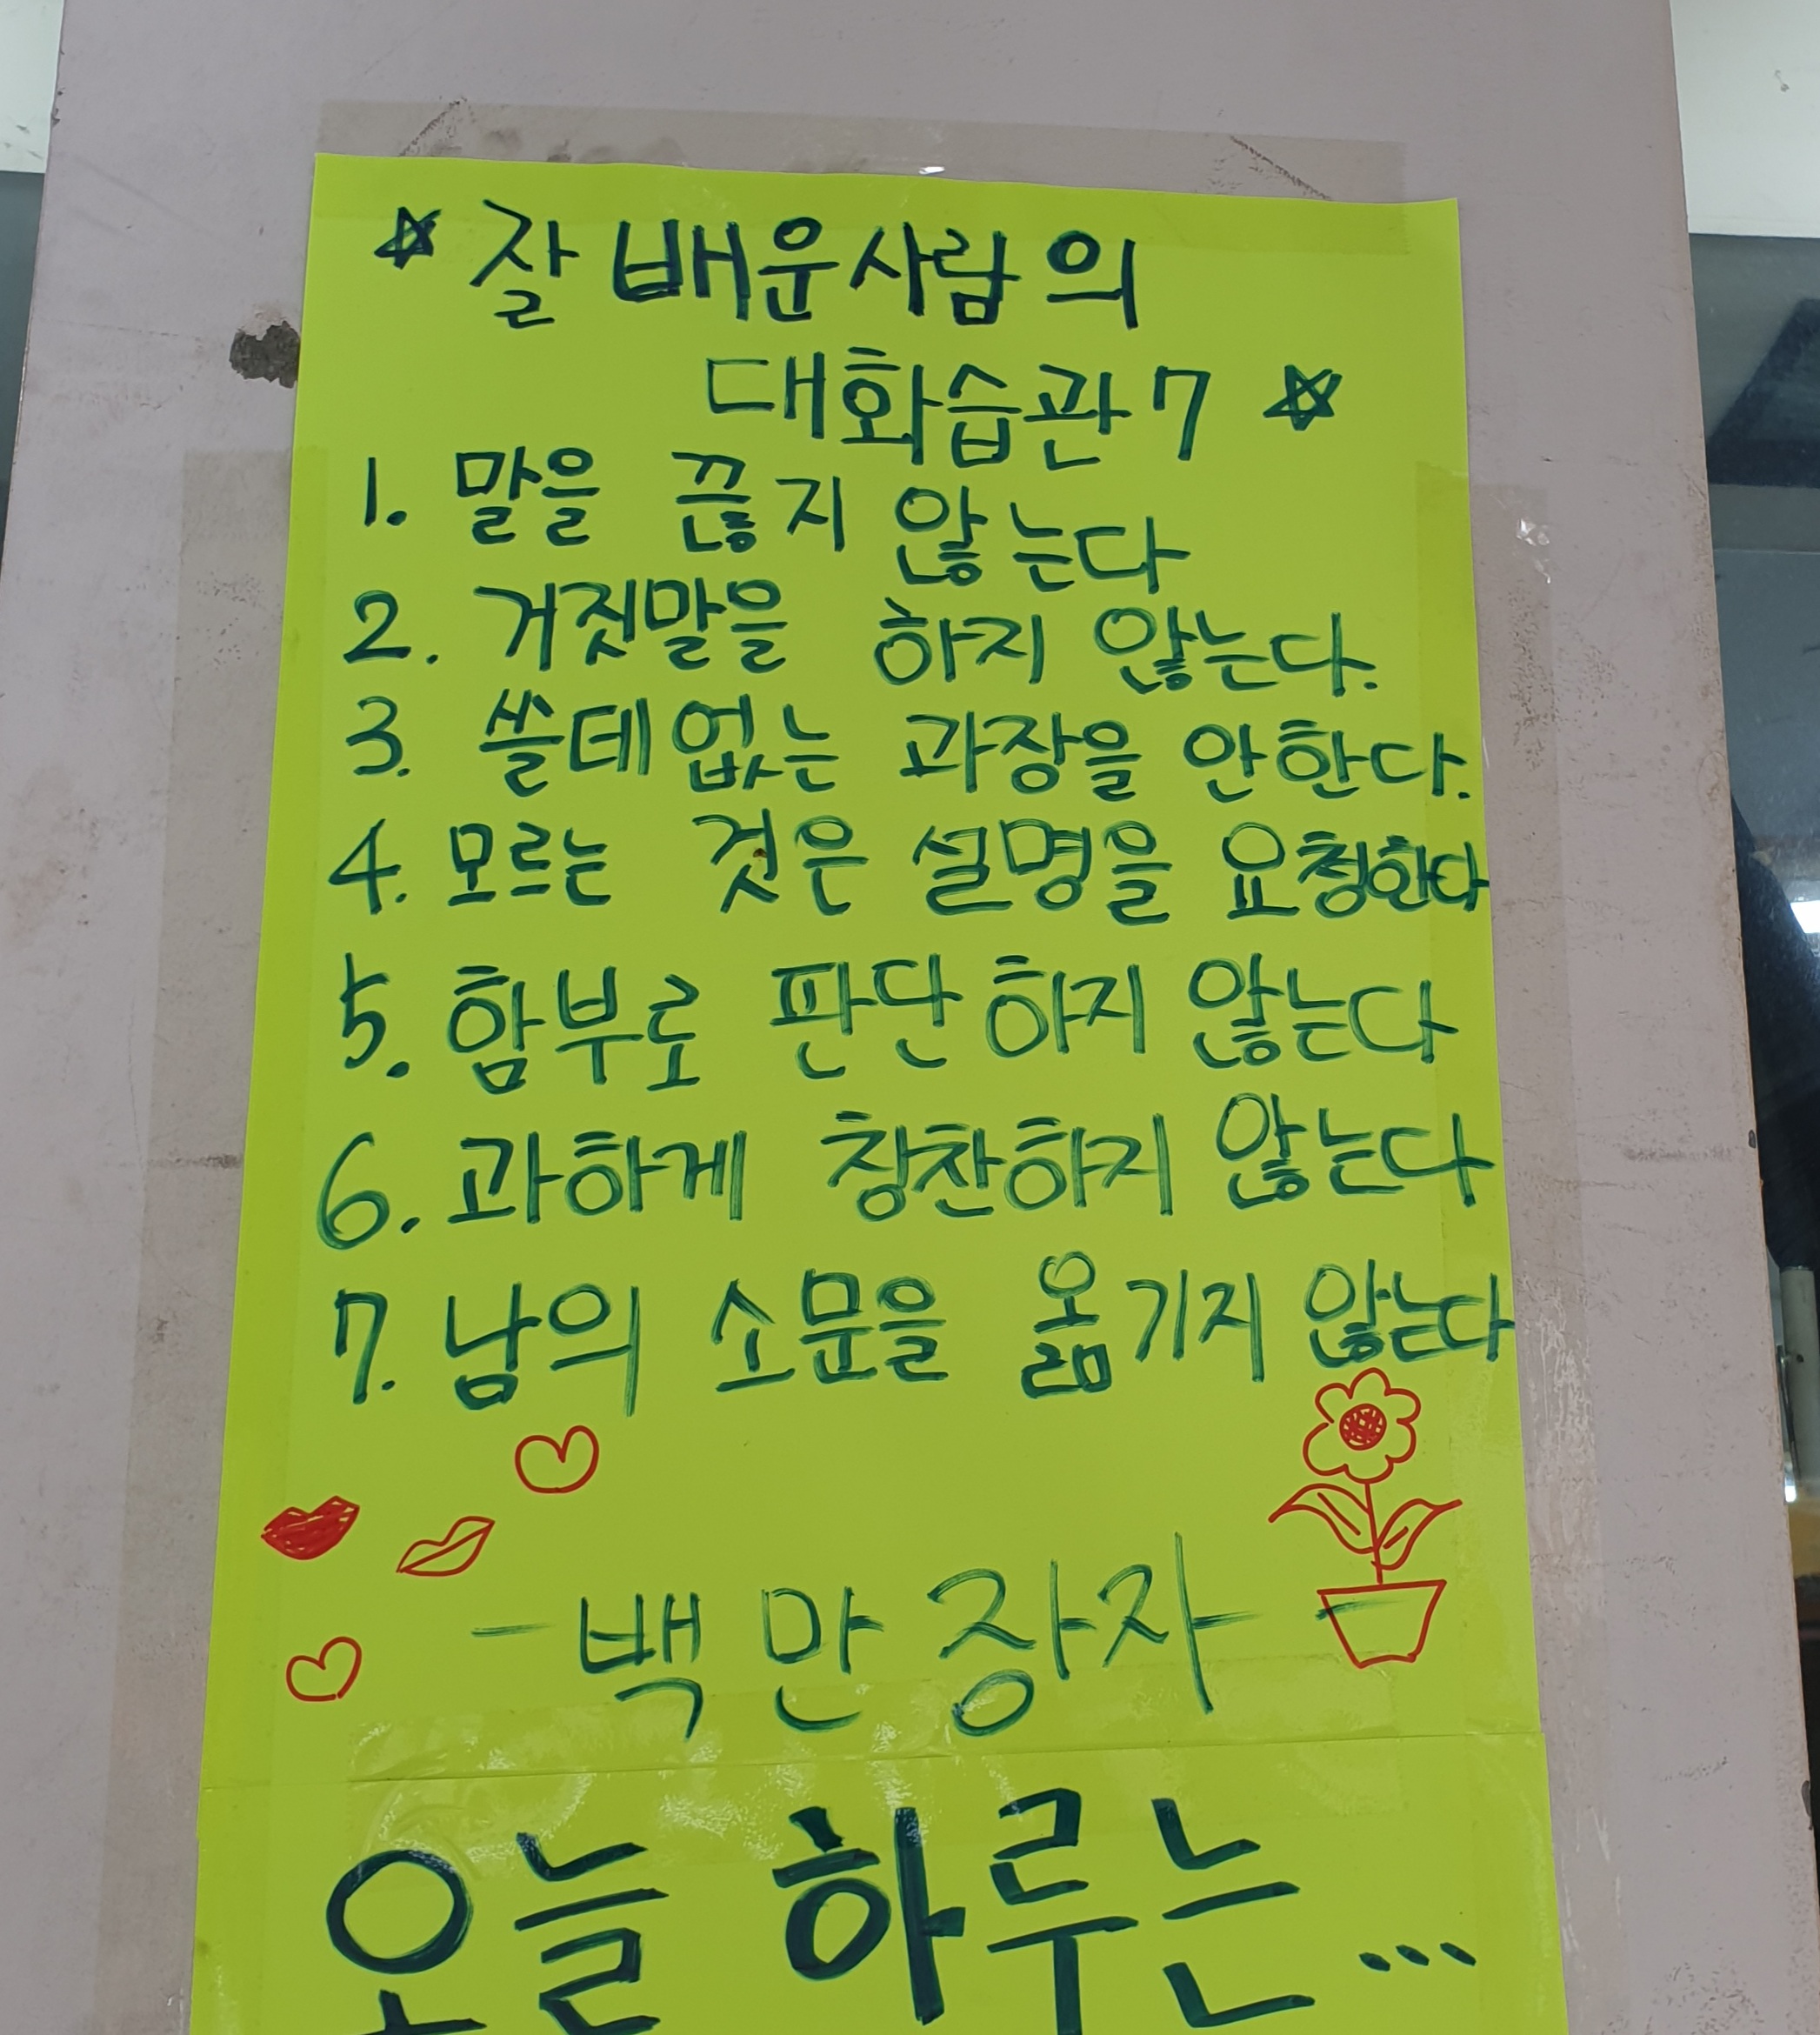 ☆ 잘 배운사람의
대화습관7 ☆
1. 말을 끊지 않는다
2. 거짓말을 하지 않는다.
3. 쓸데없는 과장을 안한다.
4. 모르는 것은 설명을 요청한다
5. 함부로 판단하지 않는다
6. 과하게 칭찬하지 않는다
7. 남의 소문을 옮기지 않는다
- 백만장자 -
오늘 하루는...